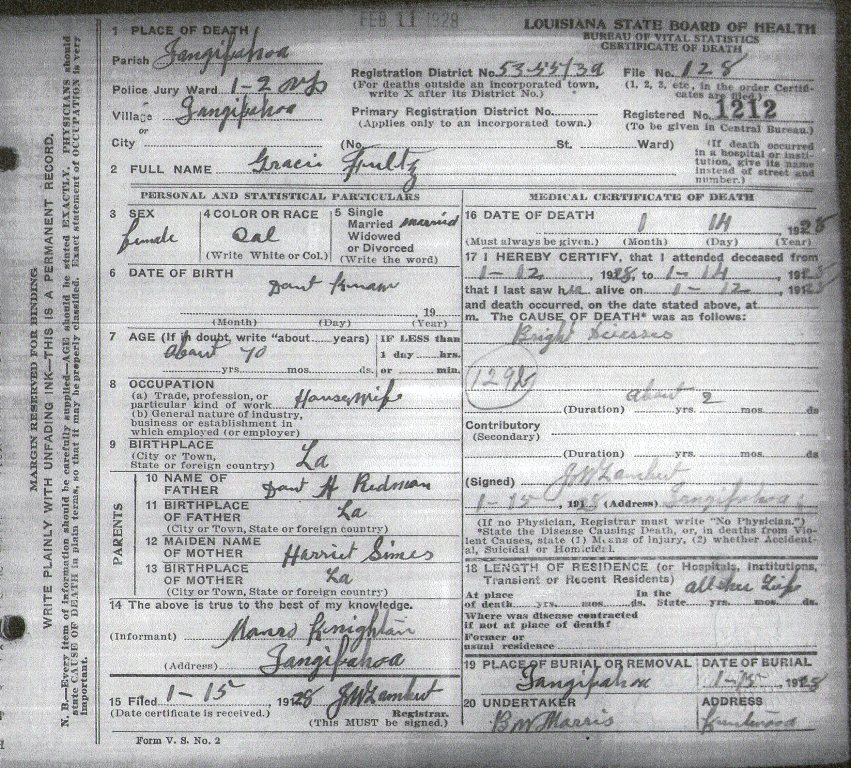 FEB 11 1928
LOUISIANA STATE BOARD OF HEALTH
BUREAU OF VITAL STATISTICS
CERTIFICATE OF DEATH
1 PLACE OF DEATH
Parish Tangipahoa
Police Jury Ward 1-2
Village Tangipahoa
or
City (No. St. Ward)
Registration District No. 53-55/39 File No. 128
(For deaths outside an incorporated town, write X after its District No.)
(1, 2, 3, etc., in the order Certificates are filed.)
Primary Registration District No.
(Applies only to an incorporated town.)
Registered No. 1212
(To be given in Central Bureau.)
(If death occurred in a hospital or institution, give its name instead of street and number.)
2 FULL NAME Gracie Fultz
PERSONAL AND STATISTICAL PARTICULARS
3 SEX
female
4 COLOR OR RACE
Col
(Write White or Col.)
5 Single
Married married
Widowed
or Divorced
(Write the word)
6 DATE OF BIRTH
Dont Know
, 19
(Month) (Day) (Year)
7 AGE (If in doubt, write "about......years)
about 70
yrs. mos. ds.
IF LESS than
1 day hrs.
or min.
8 OCCUPATION
(a) Trade, profession, or
particular kind of work House wife
(b) General nature of industry,
business or establishment in
which employed (or employer)
9 BIRTHPLACE
(City or Town,
State or foreign country) La
PARENTS
10 NAME OF
FATHER Redman
11 BIRTHPLACE
OF FATHER La
(City or Town, State or foreign country)
12 MAIDEN NAME
OF MOTHER Harriet Simes
13 BIRTHPLACE
OF MOTHER La
(City or Town, State or foreign country)
14 The above is true to the best of my knowledge.
(Informant) Knighten
(Address) Tangipahoa
15 Filed 1-15, 1928 J W Lambert
(Date certificate is received.) Registrar.
(This MUST be signed.)
Form V. S. No. 2
MEDICAL CERTIFICATE OF DEATH
16 DATE OF DEATH 1 14 , 1928
(Must always be given.) (Month) (Day) (Year)
17 I HEREBY CERTIFY, that I attended deceased from
1-12, 1928, to 1-14, 1928
that I last saw her alive on 1-12, 1928
and death occurred, on the date stated above, at
m. The CAUSE OF DEATH* was as follows:
Bright Diseases
129
about 2
(Duration) yrs. mos. ds
Contributory
(Secondary)
(Duration) yrs. mos. ds.
(Signed) J W Lambert
1-15, 1928 (Address) Tangipahoa
(If no Physician, Registrar must write "No Physician.")
*State the Disease Causing Death, or, in deaths from Violent Causes, state (1) Means of Injury, (2) whether Accidental, Suicidal or Homicidal.
18 LENGTH OF RESIDENCE (or Hospitals, Institutions,
Transient or Recent Residents)
At place In the all her Life
of death yrs. mos. ds. State yrs. mos. ds.
Where was disease contracted
if not at place of death?
Former or
usual residence
19 PLACE OF BURIAL OR REMOVAL DATE OF BURIAL
Tangipahoa 1-15, 1928
20 UNDERTAKER ADDRESS
B W Morris Kentwood
MARGIN RESERVED FOR BINDING
WRITE PLAINLY WITH UNFADING INK—THIS IS A PERMANENT RECORD.
N. B.—Every item of information should be carefully supplied—AGE should be stated EXACTLY. PHYSICIANS should
state CAUSE OF DEATH in plain terms, so that it may be properly classified. Exact statement of OCCUPATION is very
important.